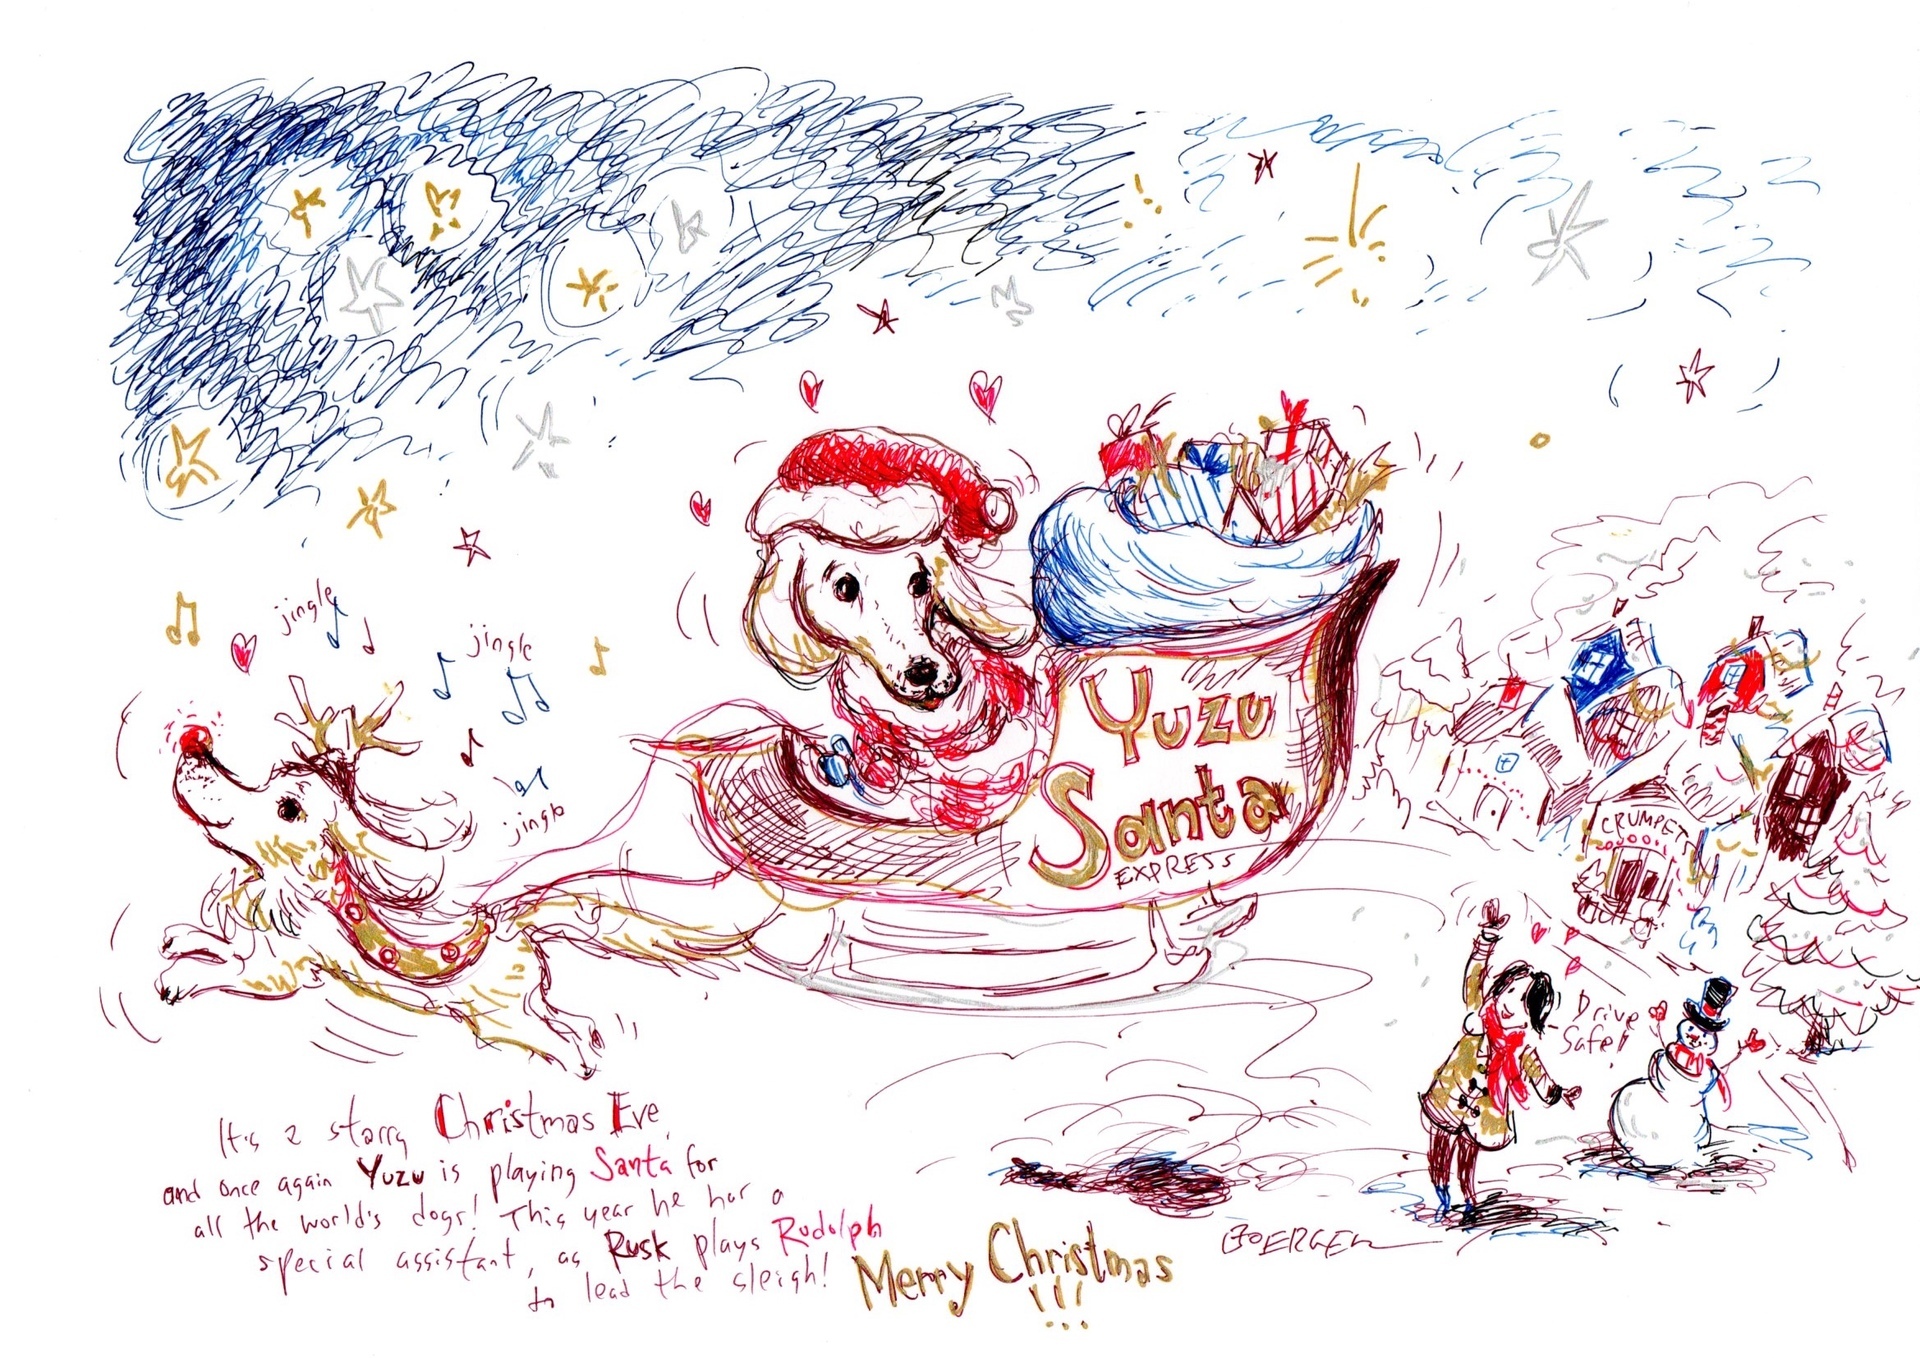 jingle
jingle
jingle
Yuzu
Santa
EXPRESS
CRUMPET
Drive
Safe!
It's a starry Christmas Eve,
and once again Yuzu is playing Santa for
all the world's dogs! This year he has a
special assistant, as Rusk plays Rudolph
to lead the sleigh!
Merry Christmas
!!!